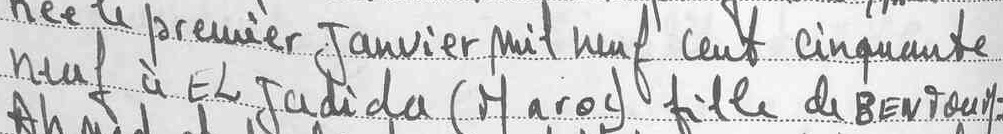 née le premier Janvier mil neuf cent cinquante
neuf à EL Jadida (Maroc) fille de BENTOUM